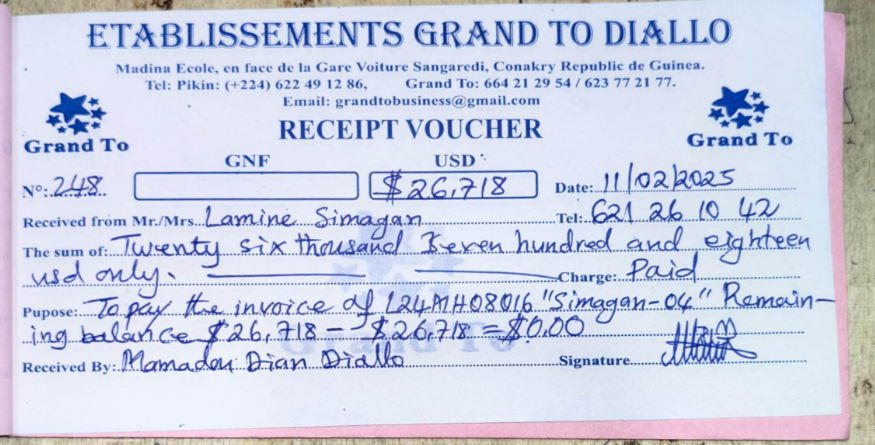 ETABLISSEMENTS GRAND TO DIALLO
Madina Ecole, en face de la Gare Voiture Sangaredi, Conakry Republic de Guinea.
Tel: Pikin: (+224) 622 49 12 86, Grand To: 664 21 29 54 / 623 77 21 77.
Email: grandtobusiness@gmail.com
Grand To
RECEIPT VOUCHER
Grand To
GNF USD
Nº: 248 $ 26,718 Date: 11/02/2025
Received from Mr./Mrs. Lamine Simagan Tel: 621 26 10 42
The sum of: Twenty six thousand Seven hundred and eighteen
usd only. Charge: Paid
Pupose: To pay the invoice of L24MH08016 "Simagan-04" Remain-
ing balance $26,718 - $26,718 = $0.00
Received By: Mamadou Dian Diallo Signature